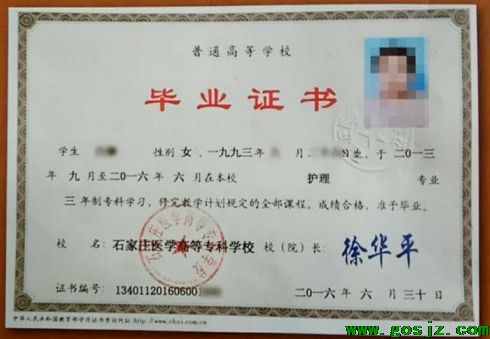 普通高等学校
毕业证书
学生 性别 女, 一九九三年 月 日生,于二〇一三
年 九 月至二〇一六年 六 月在本校 护理 专业
三 年制专科学习,修完教学计划规定的全部课程,成绩合格,准予毕业。
校 名: 石家庄医学高等专科学校 校(院)长: 徐华平
石家庄医学高等专科学校
证书编号: 13401120160600 二〇一六 年 六 月 三十 日
中华人民共和国教育部学历证书查询网址:http://www.chsi.com.cn
www.gosjz.com